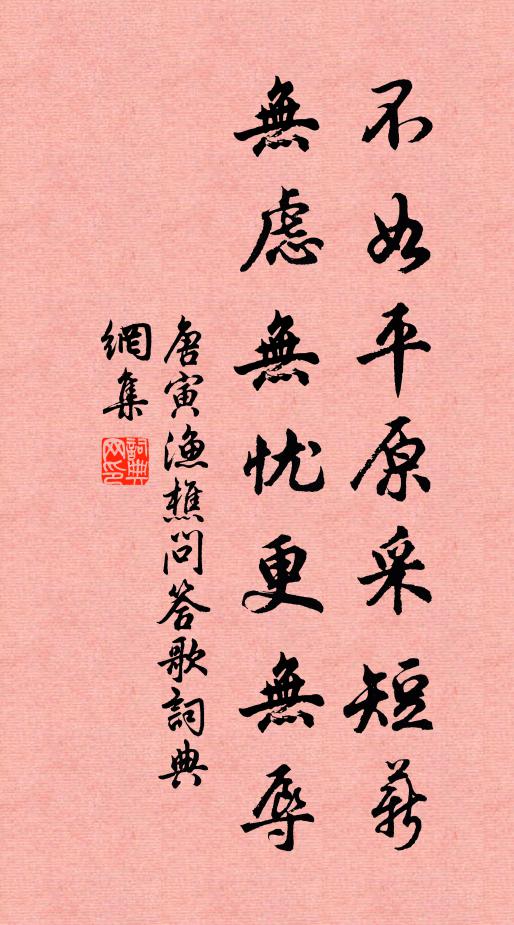 不如平原采短薪
無慮無忧更無辱
唐寅漁樵問答歌詞典
網集
詞典
网印